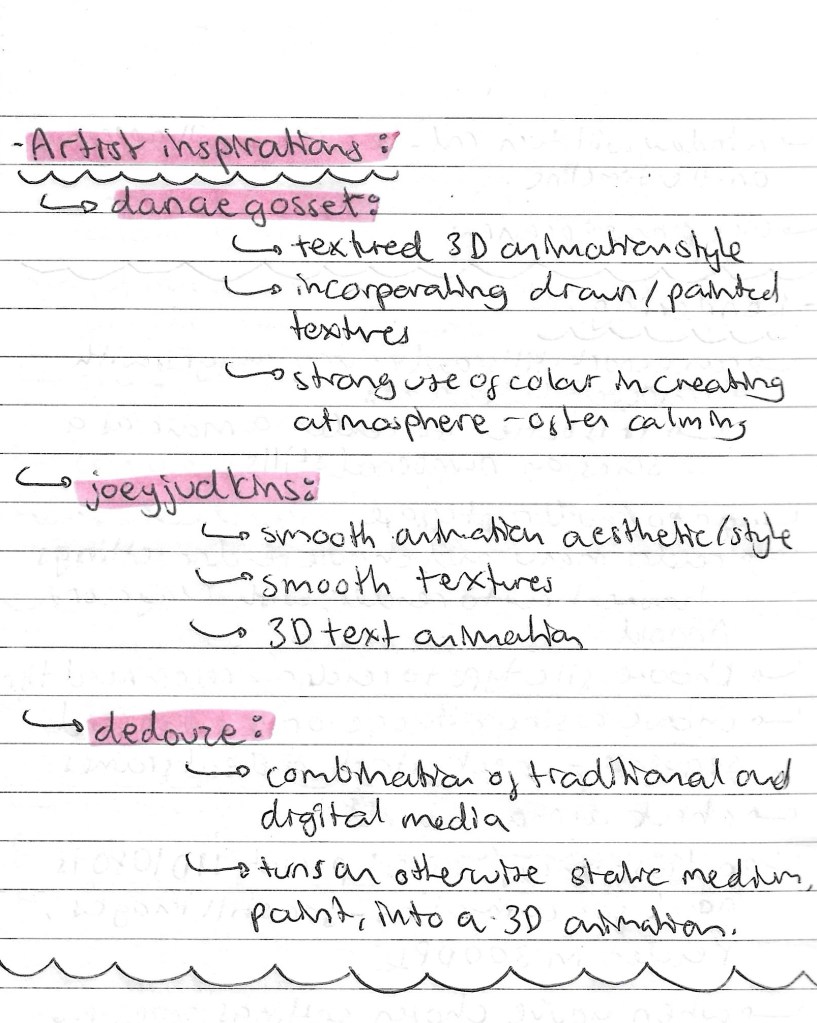 - Artist inspirations:
↳ danaegosset:
↳ textured 3D animation style
↳ incorporating drawn/painted
textures
↳ strong use of colour in creating
atmosphere - often calming
↳ joeyjudkins:
↳ smooth animation aesthetic/style
↳ smooth textures
↳ 3D text animation
↳ dedouze:
↳ combination of traditional and
digital media
↳ turns an otherwise static medium,
paint, into a 3D animation.